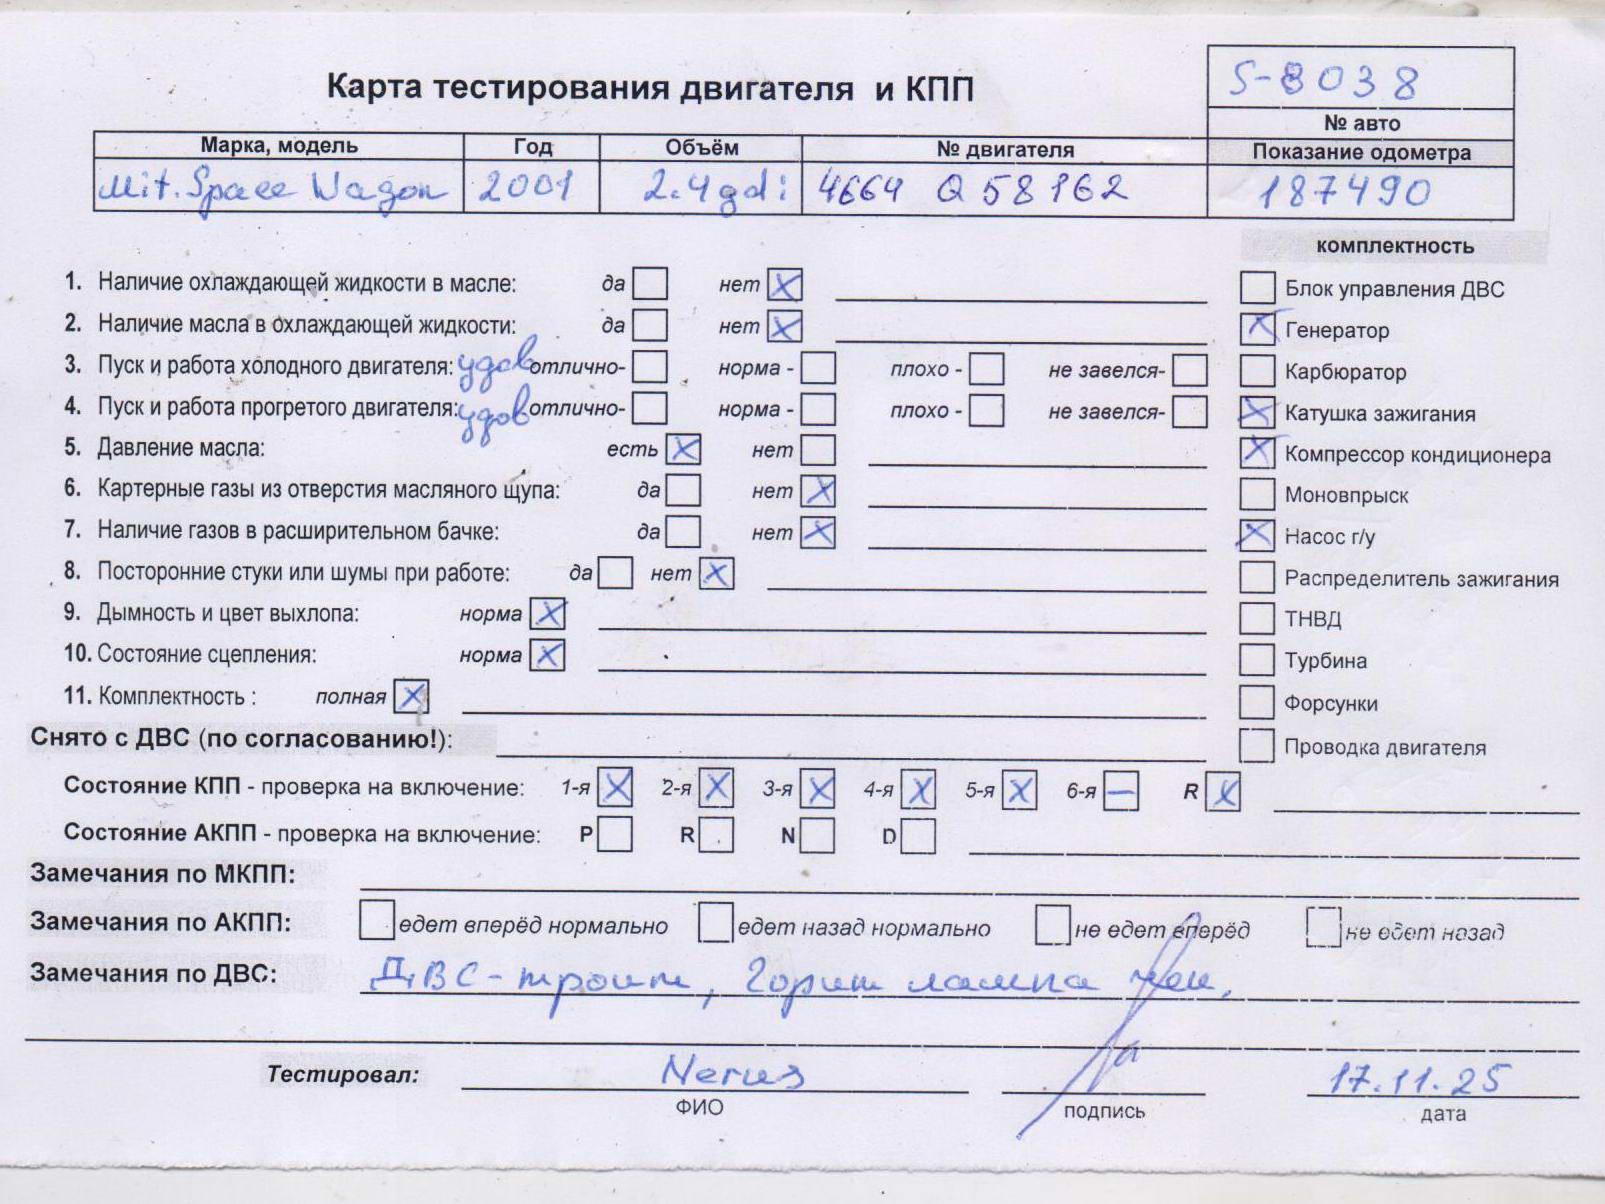 S-8038
Карта тестирования двигателя и КПП
№ авто
Марка, модель Год Объём № двигателя Показание одометра
Mit. Space Wagon 2001 2.4 gdi 4G64 Q58162 187490
комплектность
1. Наличие охлаждающей жидкости в масле: да нет X
Блок управления ДВС
2. Наличие масла в охлаждающей жидкости: да нет X
X Генератор
3. Пуск и работа холодного двигателя: удов отлично- норма - плохо - не завелся-
Карбюратор
4. Пуск и работа прогретого двигателя: удов отлично- норма - плохо - не завелся-
X Катушка зажигания
5. Давление масла: есть X нет
X Компрессор кондиционера
6. Картерные газы из отверстия масляного щупа: да нет X
Моновпрыск
7. Наличие газов в расширительном бачке: да нет X
X Насос г/у
8. Посторонние стуки или шумы при работе: да нет X
Распределитель зажигания
9. Дымность и цвет выхлопа: норма X
ТНВД
10. Состояние сцепления: норма X
Турбина
11. Комплектность : полная X
Форсунки
Снято с ДВС (по согласованию!):
Проводка двигателя
Состояние КПП - проверка на включение: 1-я X 2-я X 3-я X 4-я X 5-я X 6-я — R X
Состояние АКПП - проверка на включение: P R N D
Замечания по МКПП:
Замечания по АКПП: едет вперёд нормально едет назад нормально не едет вперёд не едет назад
Замечания по ДВС: ДВС - троит, Горит лампа чек.
Тестировал: Nerus 17.11.25
ФИО подпись дата